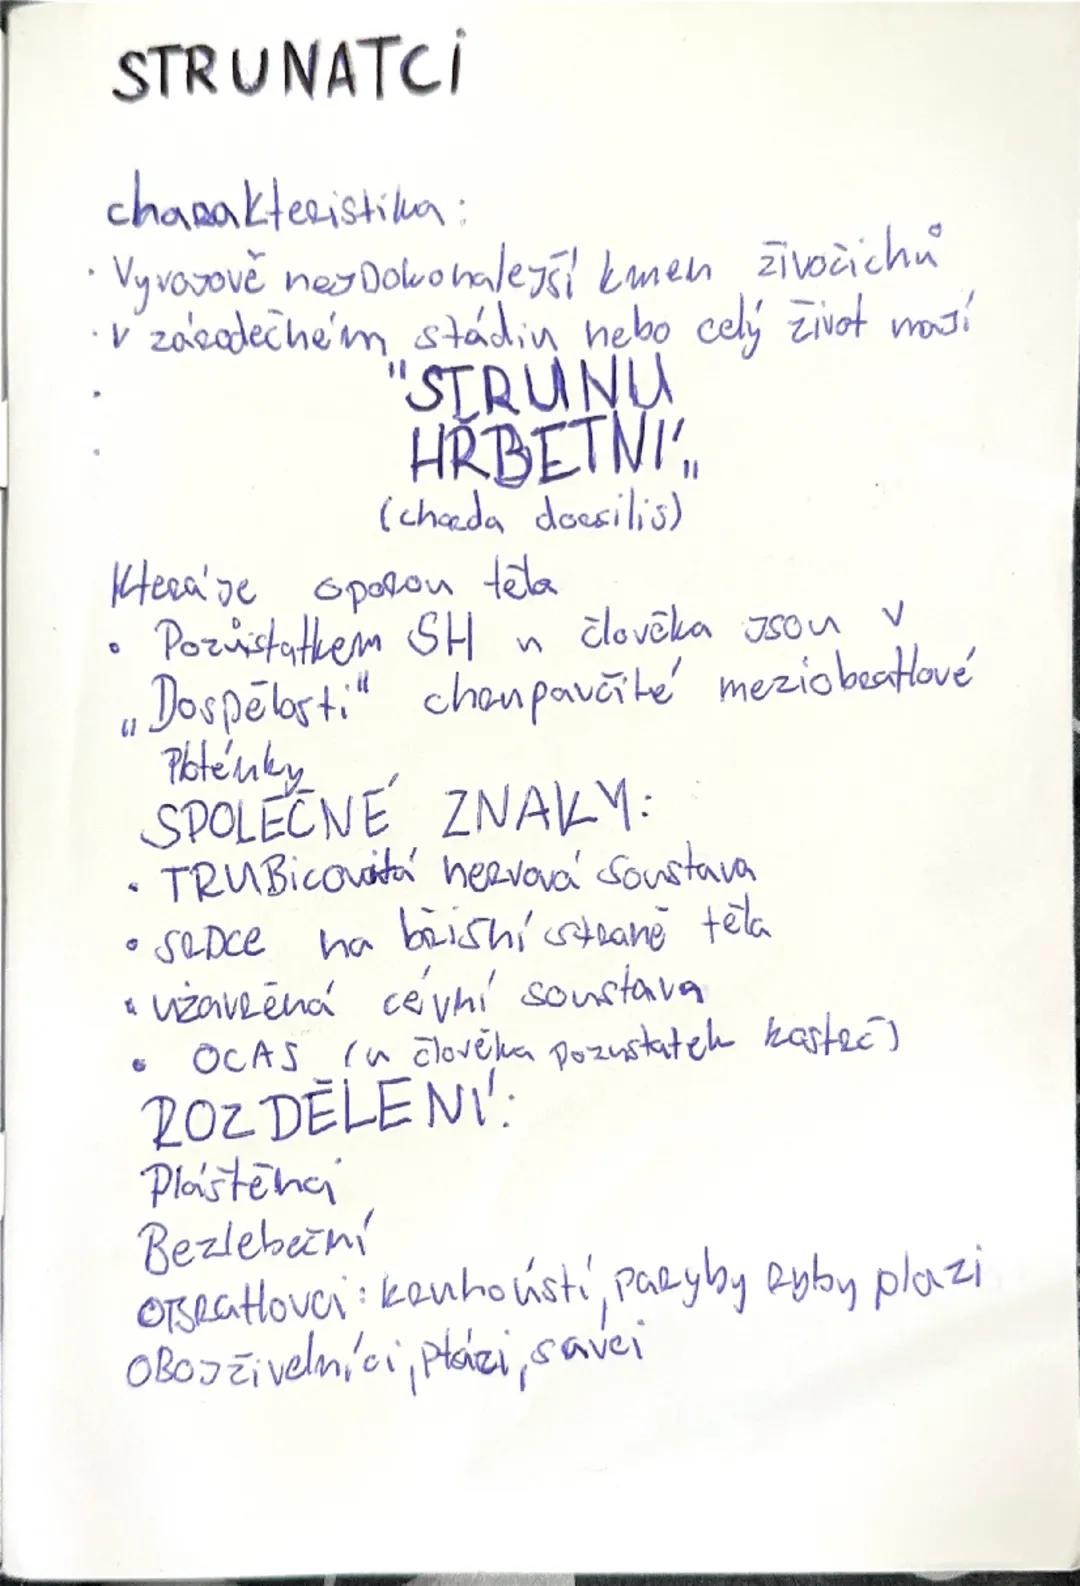 STRUNATCI
charakteristika:
· Vývojově nejDokonalejší kmen živočichů
· V zárodečném stádiu nebo celý život mají
"STRUNU
HŘBETNÍ„
(chorda dorsilis)
Která je oporou těla
• Pozůstatkem SH u člověka jsou v
„Dospělosti" chrupavčité meziobratlové
Ploténky
SPOLEČNÉ ZNAKY:
• TRUBicovitá nervová soustava
• SRDCE na břišní straně těla
• uzavřená cévní soustava
• OCAS (u člověka pozustatek kostrč)
ROZDĚLENÍ:
Pláštěnci
Bezlebeční
OBRatlovci: kruhoústí, paryby ryby plazi
OBOJživelníci, Ptáci, savci